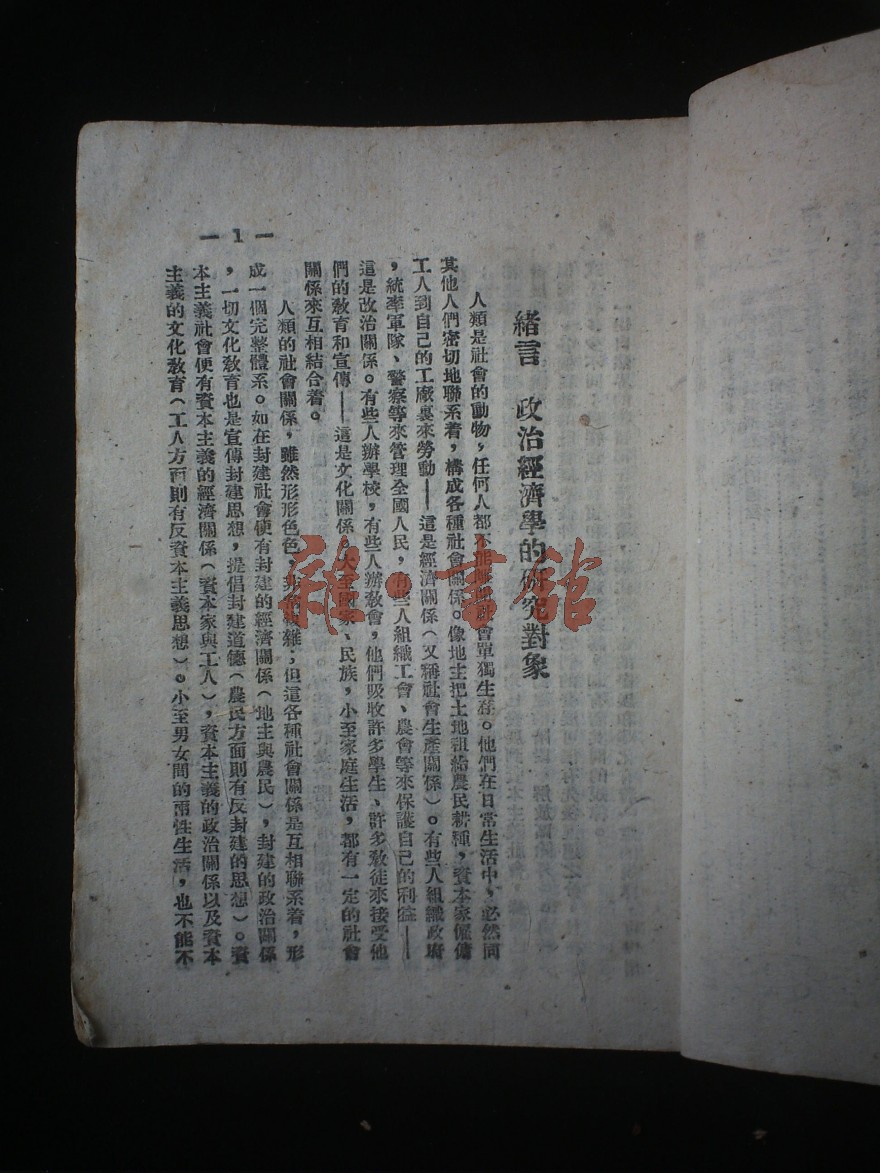 緒言　政治經濟學的研究對象
人類是社會的動物，任何人都不能離開社會單獨生存。他們在日常生活中，必然同
其他人們密切地聯系着，構成各種社會關係。像地主把土地租給農民耕種，資本家僱傭
工人到自己的工厰裏來勞動——這是經濟關係（又稱社會生產關係）。有些人組織政府
，統率軍隊、警察等來管理全國人民，有些人組織工會、農會等來保護自己的利益——
這是政治關係。有些人辦學校，有些人辦教會，他們吸收許多學生、許多教徒來接受他
們的教育和宣傳——這是文化關係。大至國家、民族，小至家庭生活，都有一定的社會
關係來互相結合着。
人類的社會關係，雖然形形色色，非常複雜；但這各種社會關係是互相聯系着，形
成一個完整體系。如在封建社會便有封建的經濟關係（地主與農民），封建的政治關係
，一切文化教育也是宣傳封建思想，提倡封建道德（農民方面則有反封建的思想）。資
本主義社會便有資本主義的經濟關係（資本家與工人），資本主義的政治關係以及資本
主義的文化教育（工人方面則有反資本主義思想）。小至男女間的兩性生活，也不能不
— 1 —
雜·書舘